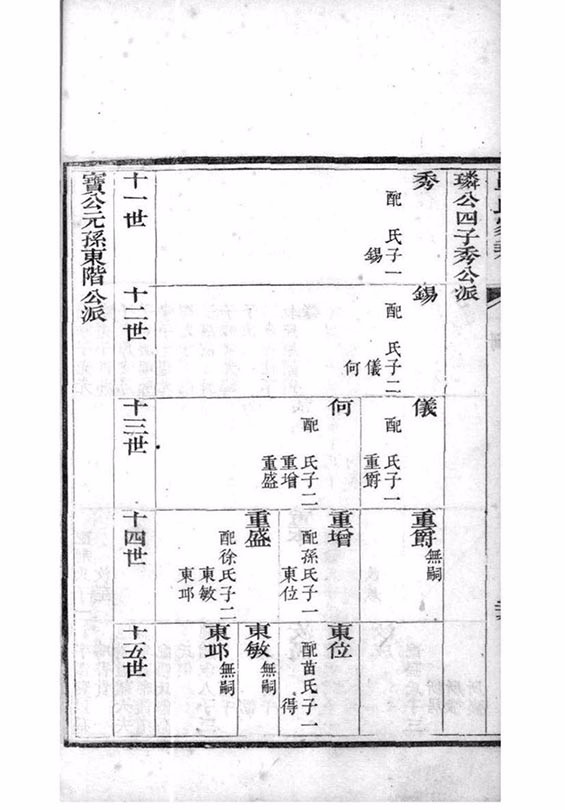 璘公四子秀公派
秀
配　氏子一
錫
錫
配　氏子二
儀
何
儀
配　氏子一
重爵
何
配　氏子二
重增
重盛
重爵
無嗣
重增
配孫氏子一
東位
重盛
配徐氏子二
東敏
東邛
東位
配苗氏子一
得
東敏
無嗣
東邛
無嗣
十一世
十二世
十三世
十四世
十五世
寶公元孫東階公派